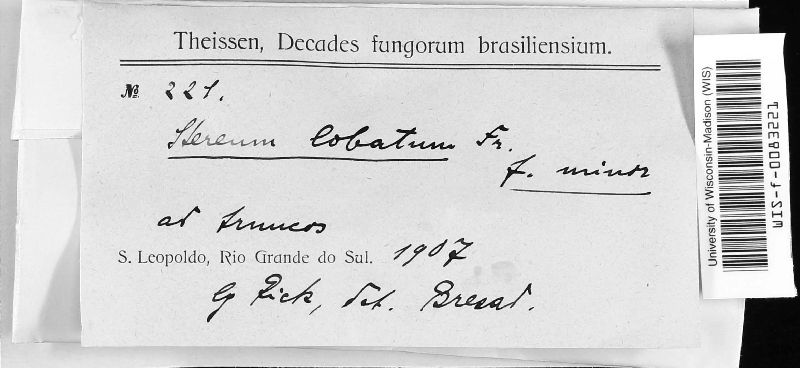 Theissen, Decades fungorum brasiliensium.
№ 221.
Stereum lobatum Fr.
f. minor
ad truncos
S. Leopoldo, Rio Grande do Sul. 1907
lg Rick, det. Bresad.
University of Wisconsin-Madison (WIS)
WIS-f-0083221